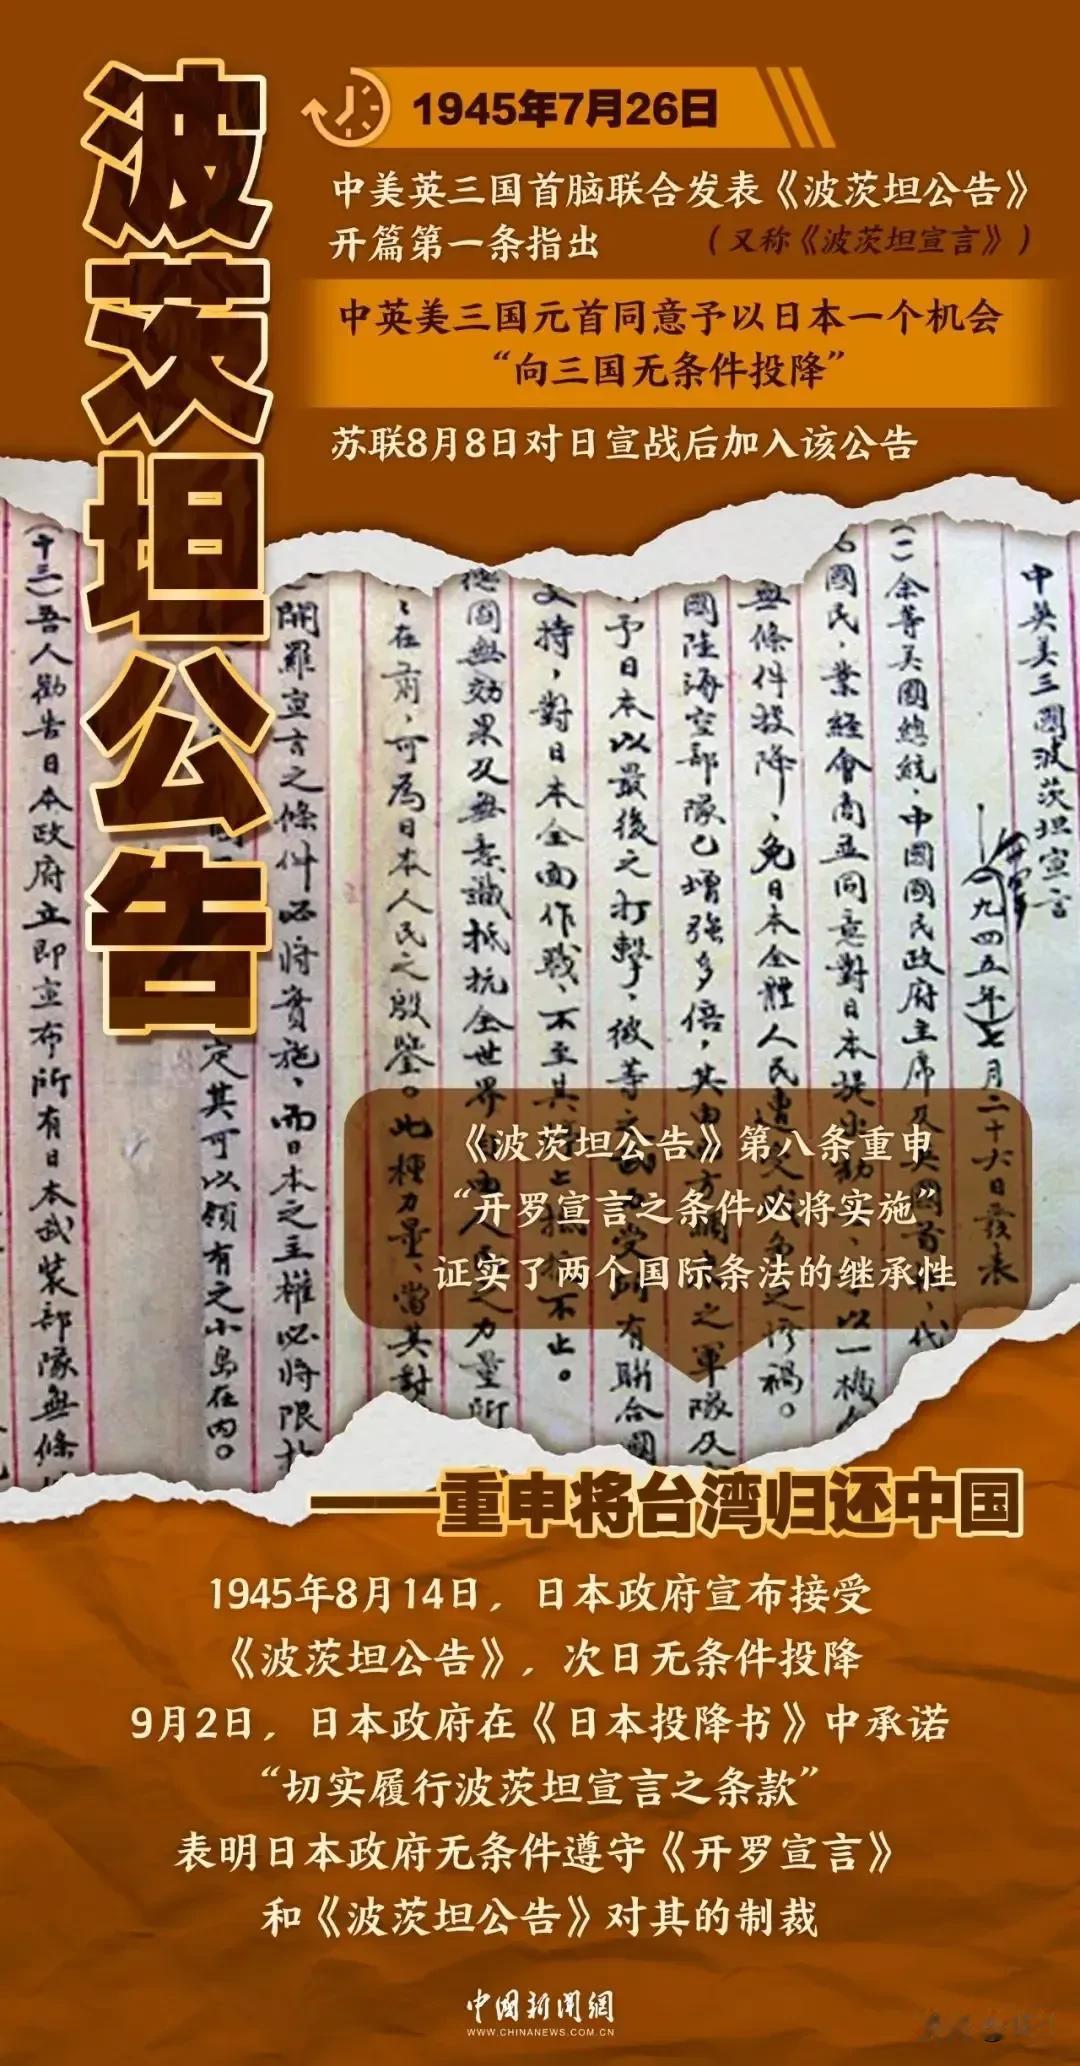 波茨坦公告
1945年7月26日
中美英三国首脑联合发表《波茨坦公告》
开篇第一条指出
（又称《波茨坦宣言》）
中英美三国元首同意予以日本一个机会
“向三国无条件投降”
苏联8月8日对日宣战后加入该公告
中英美三國波茨坦宣言
一九四五年七月二十六日發表
(一)余等美國總統、中國國民政府主席及英國首相、代
國民、業經會商並同意對日本提出
以一機會
無條件投降、免日本全體人民遭
之慘禍。
國陸海空部隊已增強多倍，其由
之軍隊及
予日本以最後之打擊，彼等之武力受
有聯合國
支持，對日本全面作戰、不至其
止抵抗不止。
德國無効果及無意識抵抗全世界自由人民之力量所
在前，可為日本人民之殷鑒。此種力量、當其對
開羅宣言之條件必將實施、而日本之主權必將限於
定其可以領有之小島在內。
(十三)吾人勸告日本政府立即宣布所有日本武裝部隊無條
《波茨坦公告》第八条重申
“开罗宣言之条件必将实施”
证实了两个国际条法的继承性
——重申将台湾归还中国
1945年8月14日，日本政府宣布接受
《波茨坦公告》，次日无条件投降
9月2日，日本政府在《日本投降书》中承诺
“切实履行波茨坦宣言之条款”
表明日本政府无条件遵守《开罗宣言》
和《波茨坦公告》对其的制裁
中國新聞網
WWW.CHINANEWS.COM.CN